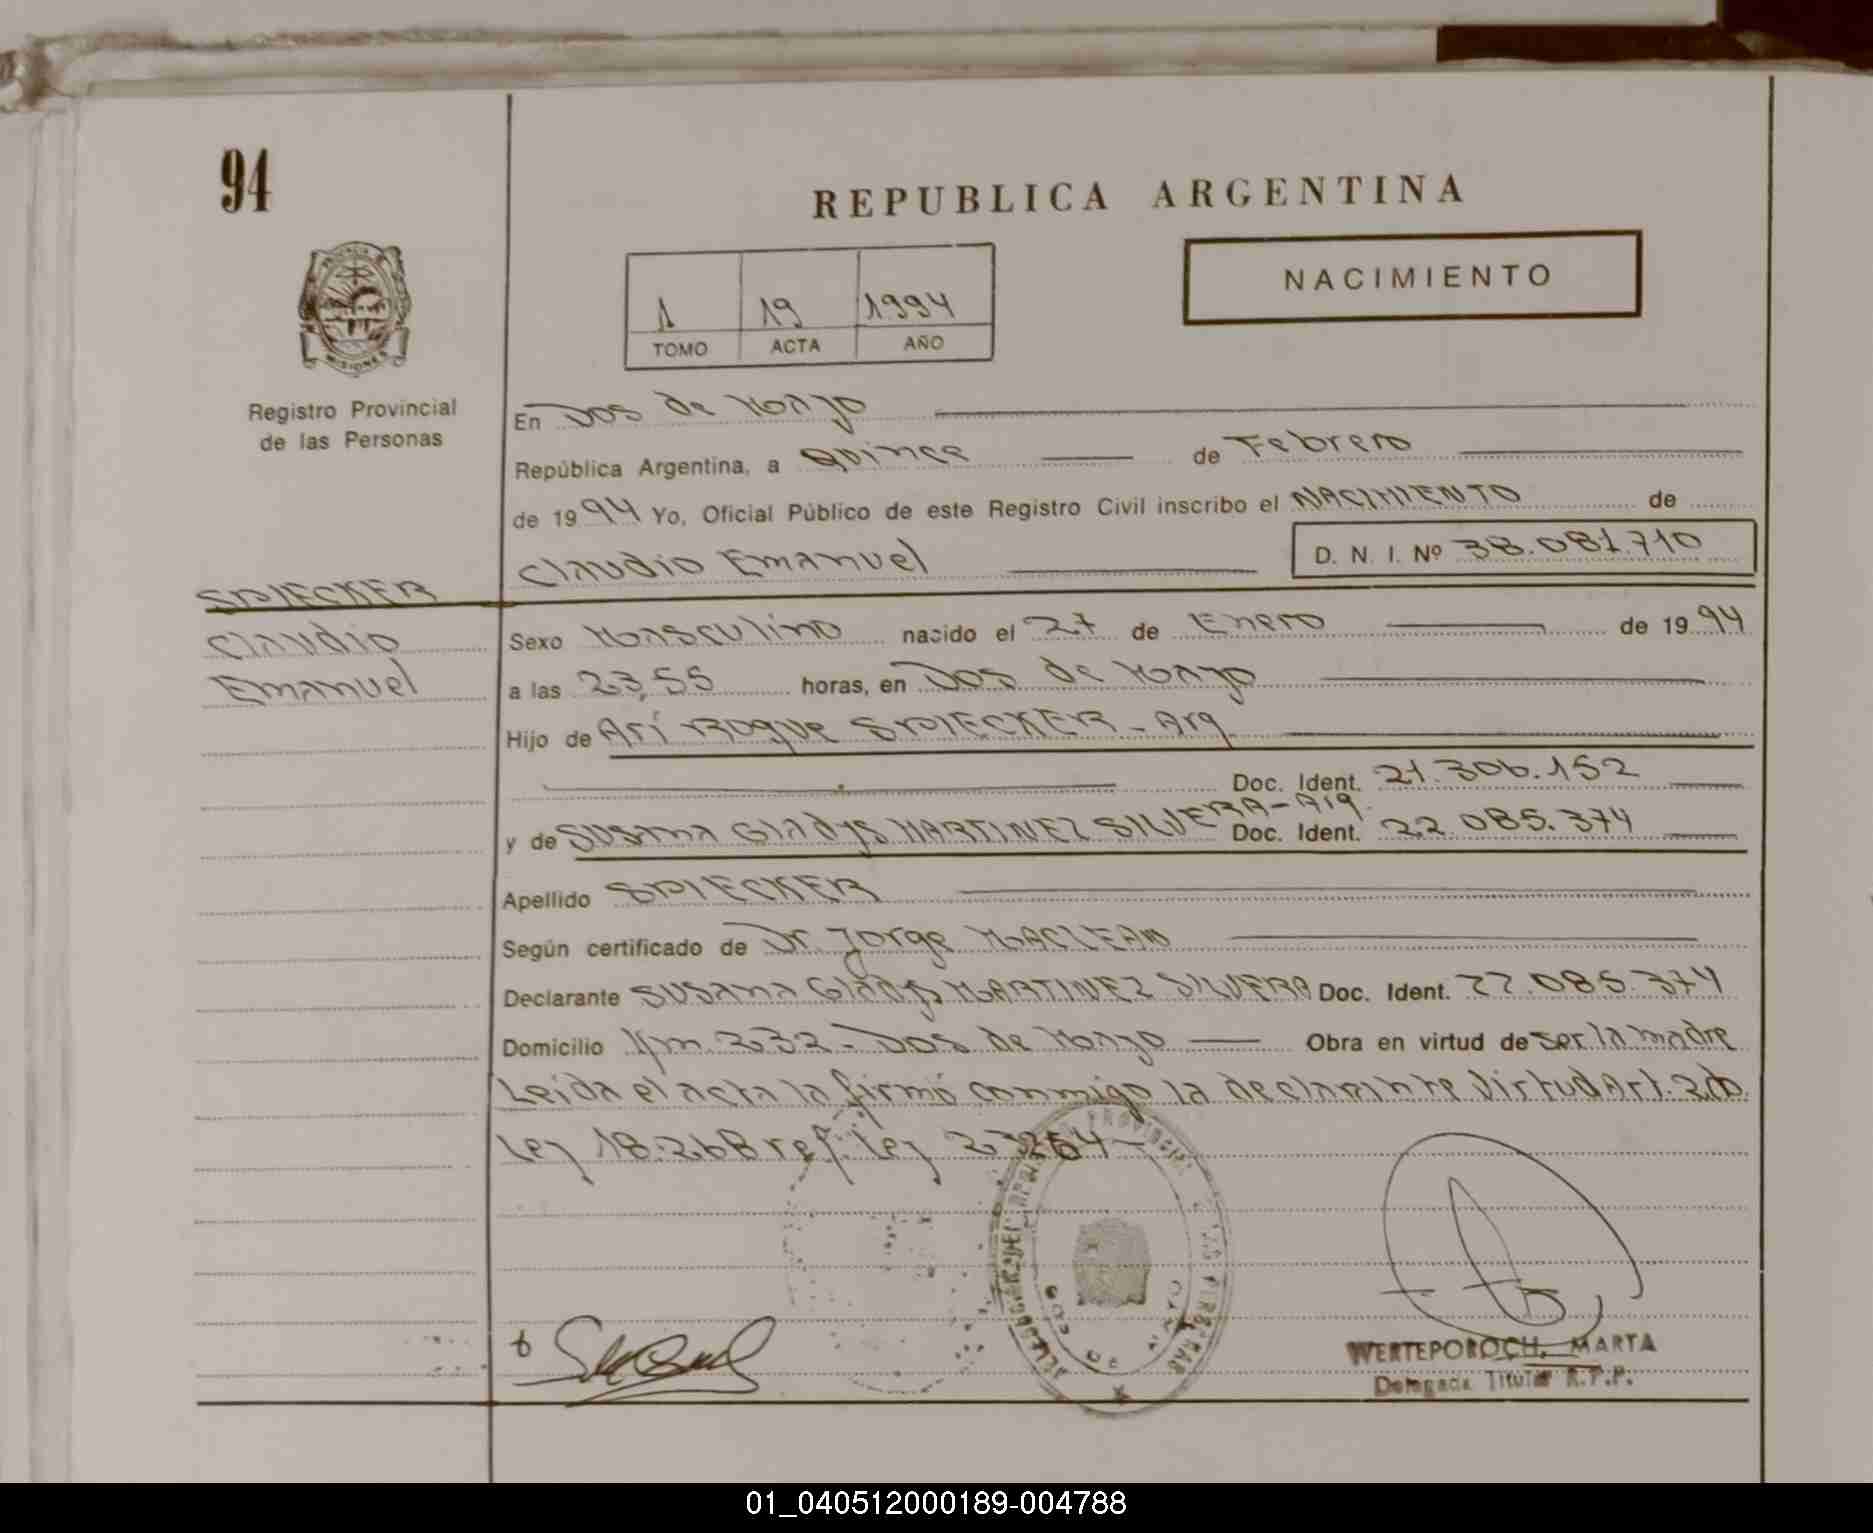 94
REPUBLICA ARGENTINA
PROVINCIA
MISIONES
Registro Provincial
de las Personas
1 19 1994
TOMO ACTA AÑO
NACIMIENTO
En Dos de Mayo
República Argentina, a Quince de Febrero
de 1994 Yo, Oficial Público de este Registro Civil inscribo el NACIMIENTO de
Claudio Emanuel D. N. I. Nº 38.081.710
SPIECKER
Claudio
Emanuel
Sexo Masculino nacido el 27 de Enero de 1994
a las 23,55 horas, en Dos de Mayo
Hijo de Ari Roque SPIECKER - Arg
Doc. Ident. 21.306.152
y de Susana Gladys MARTINEZ SILVERA - Arg. Doc. Ident. 22.085.374
Apellido SPIECKER
Según certificado de Dr. Jorge MACLEAN
Declarante Susana Gladys MARTINEZ SILVERA Doc. Ident. 22.085.374
Domicilio Km. 232 - Dos de Mayo Obra en virtud de ser la madre
Leida el acta la firmó conmigo la declarante virtud Art. 2do.
Ley 18.268 ref. Ley 23264 -
DOS DE MAYO
WERTEPOROCH, MARTA
Delegada Titular R.P.P.
01_040512000189-004788